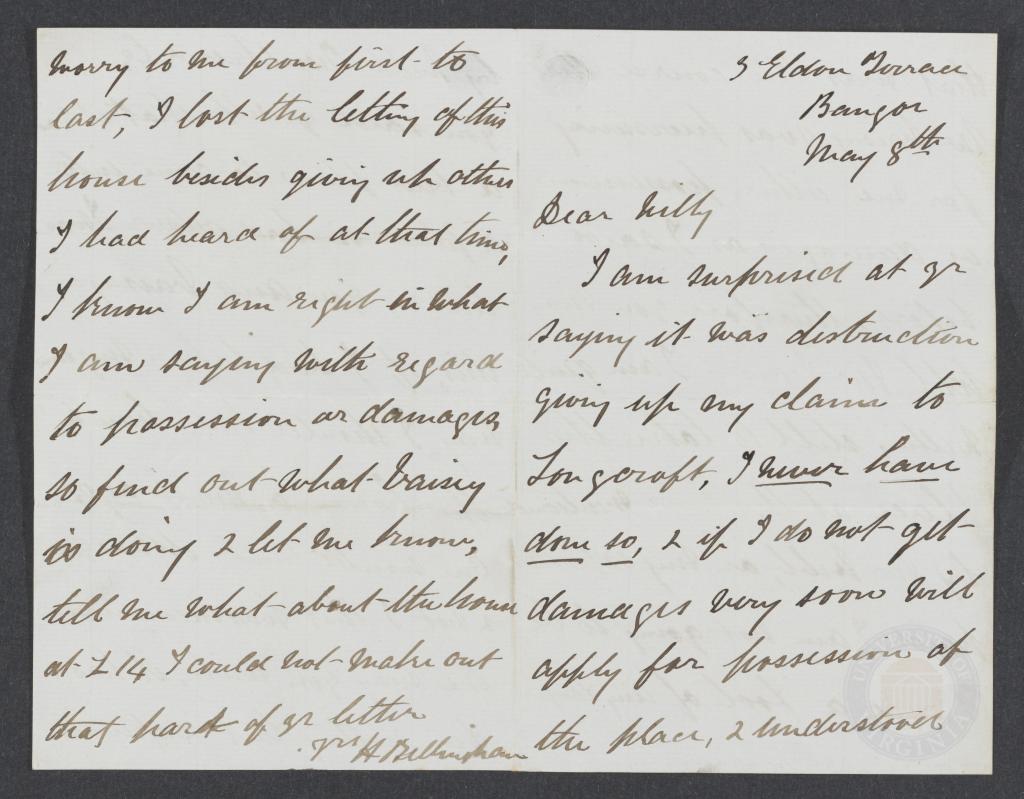 3 Eldon Terrace
Bangor
May 8th
Dear Nelly
I am surprised at yr
saying it was destruction
giving up my claim to
Longcroft, I never have
done so, & if I do not get
damages very soon will
apply for possession of
the place, & understood
worry to me from first to
last, I lost the letting of this
house besides giving up others
I had heard of at that time,
I know I am right in what
I am saying with regard
to possession or damages
so find out what Vaisey
is doing & let me know,
tell me what about the house
at £14 I could not make out
that part of yr letter
yrs H Bellingham
UNIVERSITY OF VIRGINIA